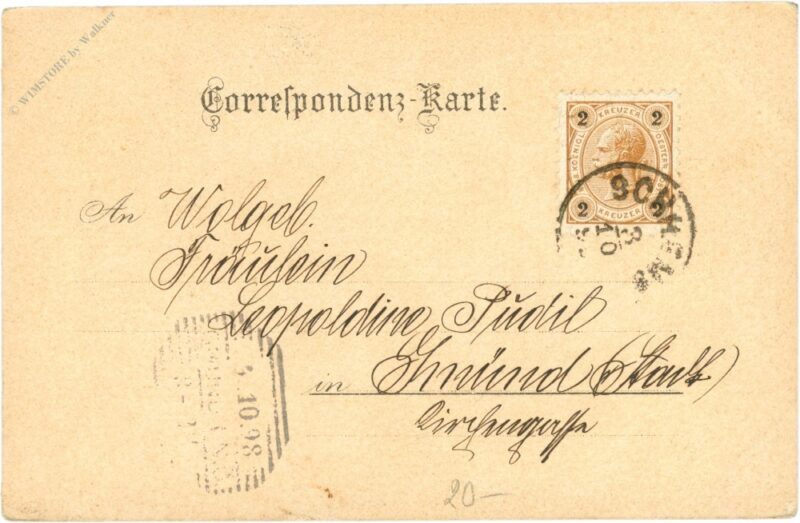 © WIMSTORE by Walkner
Correſpondenz-Karte.
2 KREUZER 2
2 KREUZER 2
SCHREMS
3
10
An Wolgeb.
Fräulein
Leopoldine Pudil
in Gmünd (Stadt)
Kirchengasse
10.98
20—